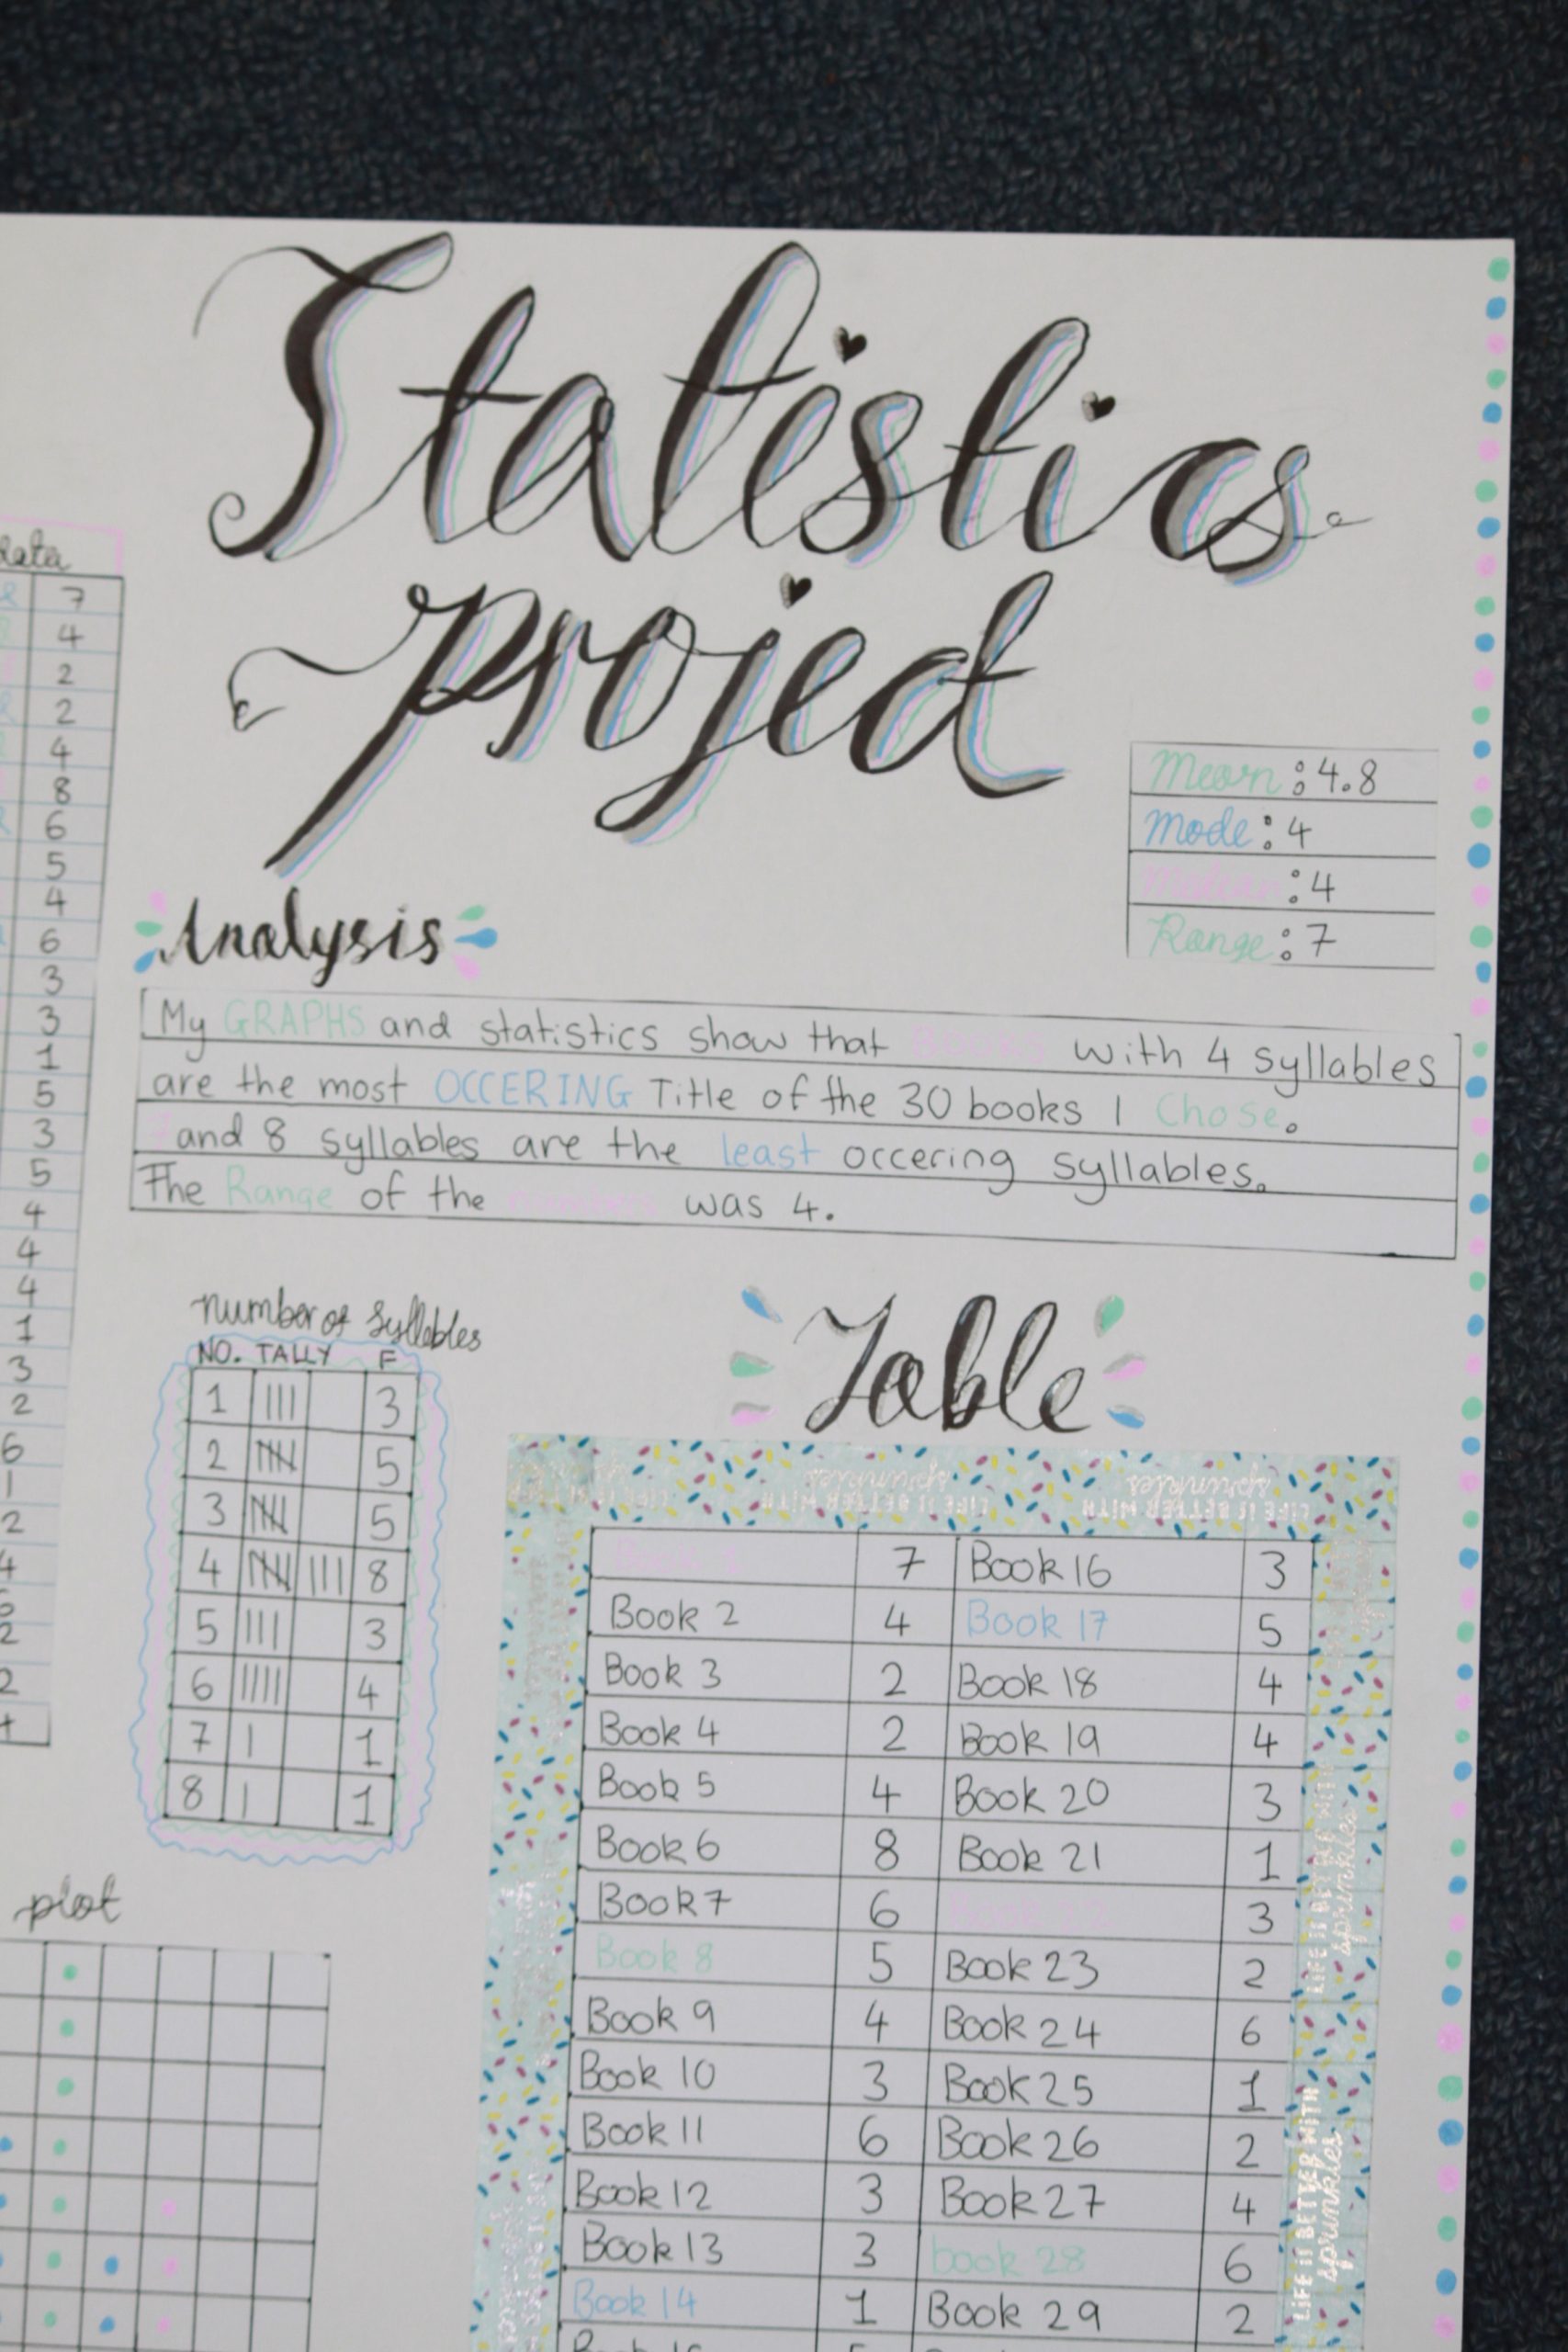 Statistics
project
data
7
4
2
2
4
8
6
5
4
6
3
3
1
5
3
5
4
4
4
1
3
2
6
1
2
4
2
2
Mean : 4.8
Mode : 4
Median : 4
Range : 7
Analysis
My GRAPHS and statistics show that BOOKS with 4 syllables
are the most OCCERING Title of the 30 books I Chose.
7 and 8 syllables are the least occering syllables.
The Range of the numbers was 4.
number of Syllebles
NO. TALLY F
1 |||| 3
2 5
3 5
4 8
5 ||| 3
6 4
7 | 1
8 | 1
plot
Table
LIFE IS BETTER WITH sprinkles
Book 1 7 Book 16 3
Book 2 4 Book 17 5
Book 3 2 Book 18 4
Book 4 2 Book 19 4
Book 5 4 Book 20 3
Book 6 8 Book 21 1
Book 7 6 Book 22 3
Book 8 5 Book 23 2
Book 9 4 Book 24 6
Book 10 3 Book 25 1
Book 11 6 Book 26 2
Book 12 3 Book 27 4
Book 13 3 book 28 6
Book 14 1 Book 29 2
LIFE IS BETTER WITH sprinkles
LIFE IS BETTER WITH sprinkles